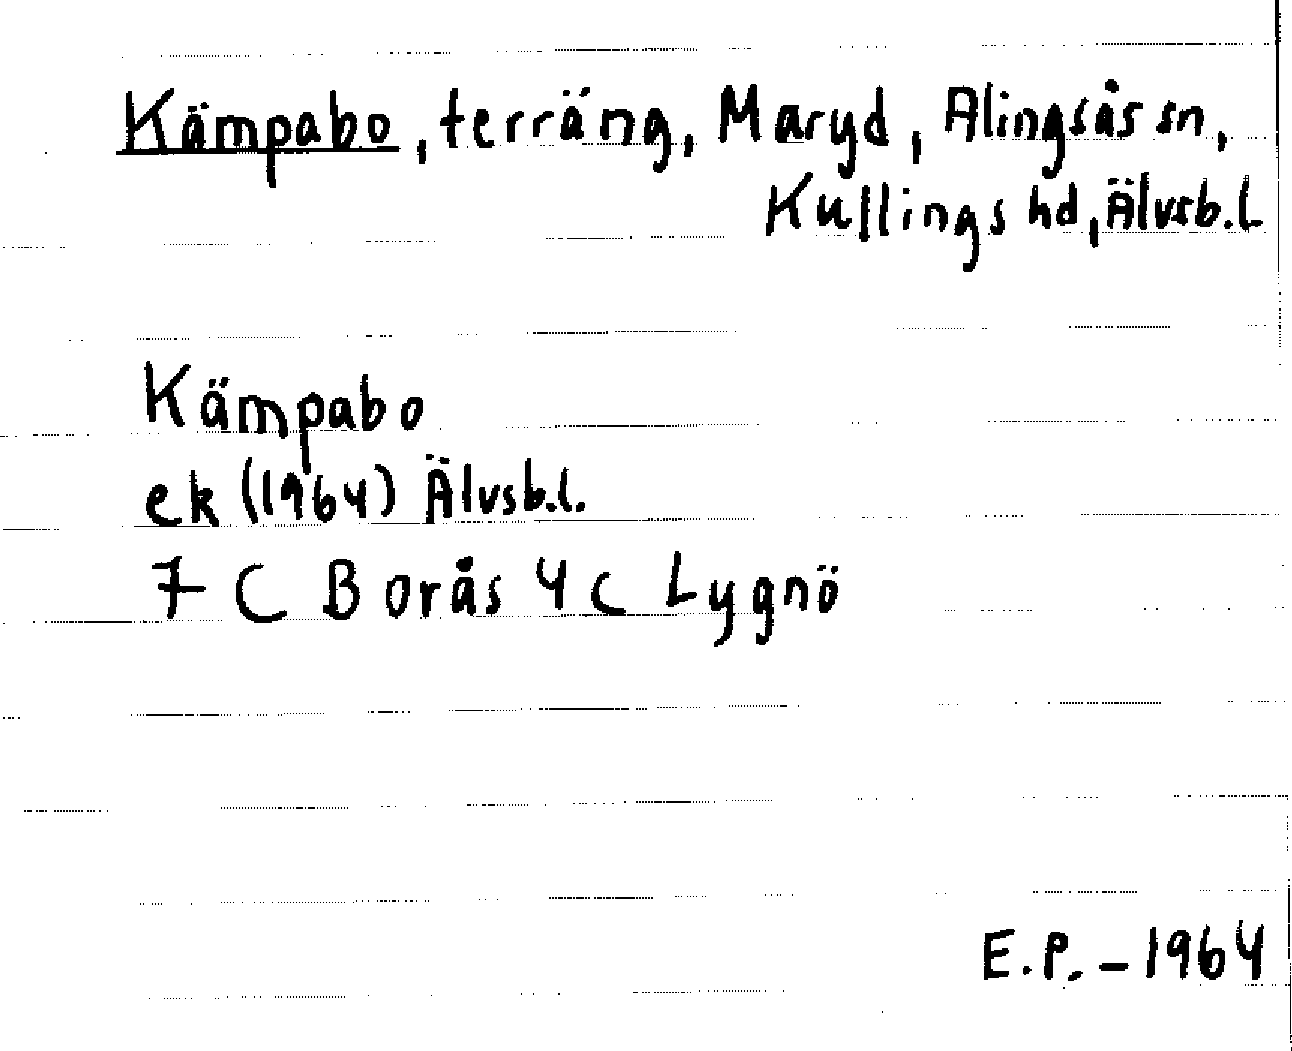 Kämpabo, terräng, Maryd, Alingsås sn,
Kullings hd, Älvsb.l
Kämpabo
ek (1964) Älvsb.l.
7 C Borås 4 c Lygnö
E.P. - 1964